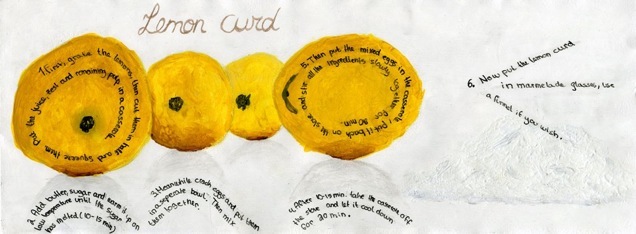 Lemon curd
1. First, grate the lemons, then cut them in half and squeeze them. Put the juice, zest and remaining pulp in a casserole.
2. Add butter, sugar and warm it up on
low temperature until the sugar
has melted (10-15 min)
3. Meanwhile crack eggs and put them
in a seperate bowl. Then mix
them together.
4. After 10-15 min. take the casserole off
the stove and let it cool down
for 30 min.
5. Then put the mixed eggs in the casserole. Put it back on the stove
and stir all the ingredients slowly together for 30 min.
6. Now put the lemon curd
in marmelade glasses, use
a funnel if you wish.